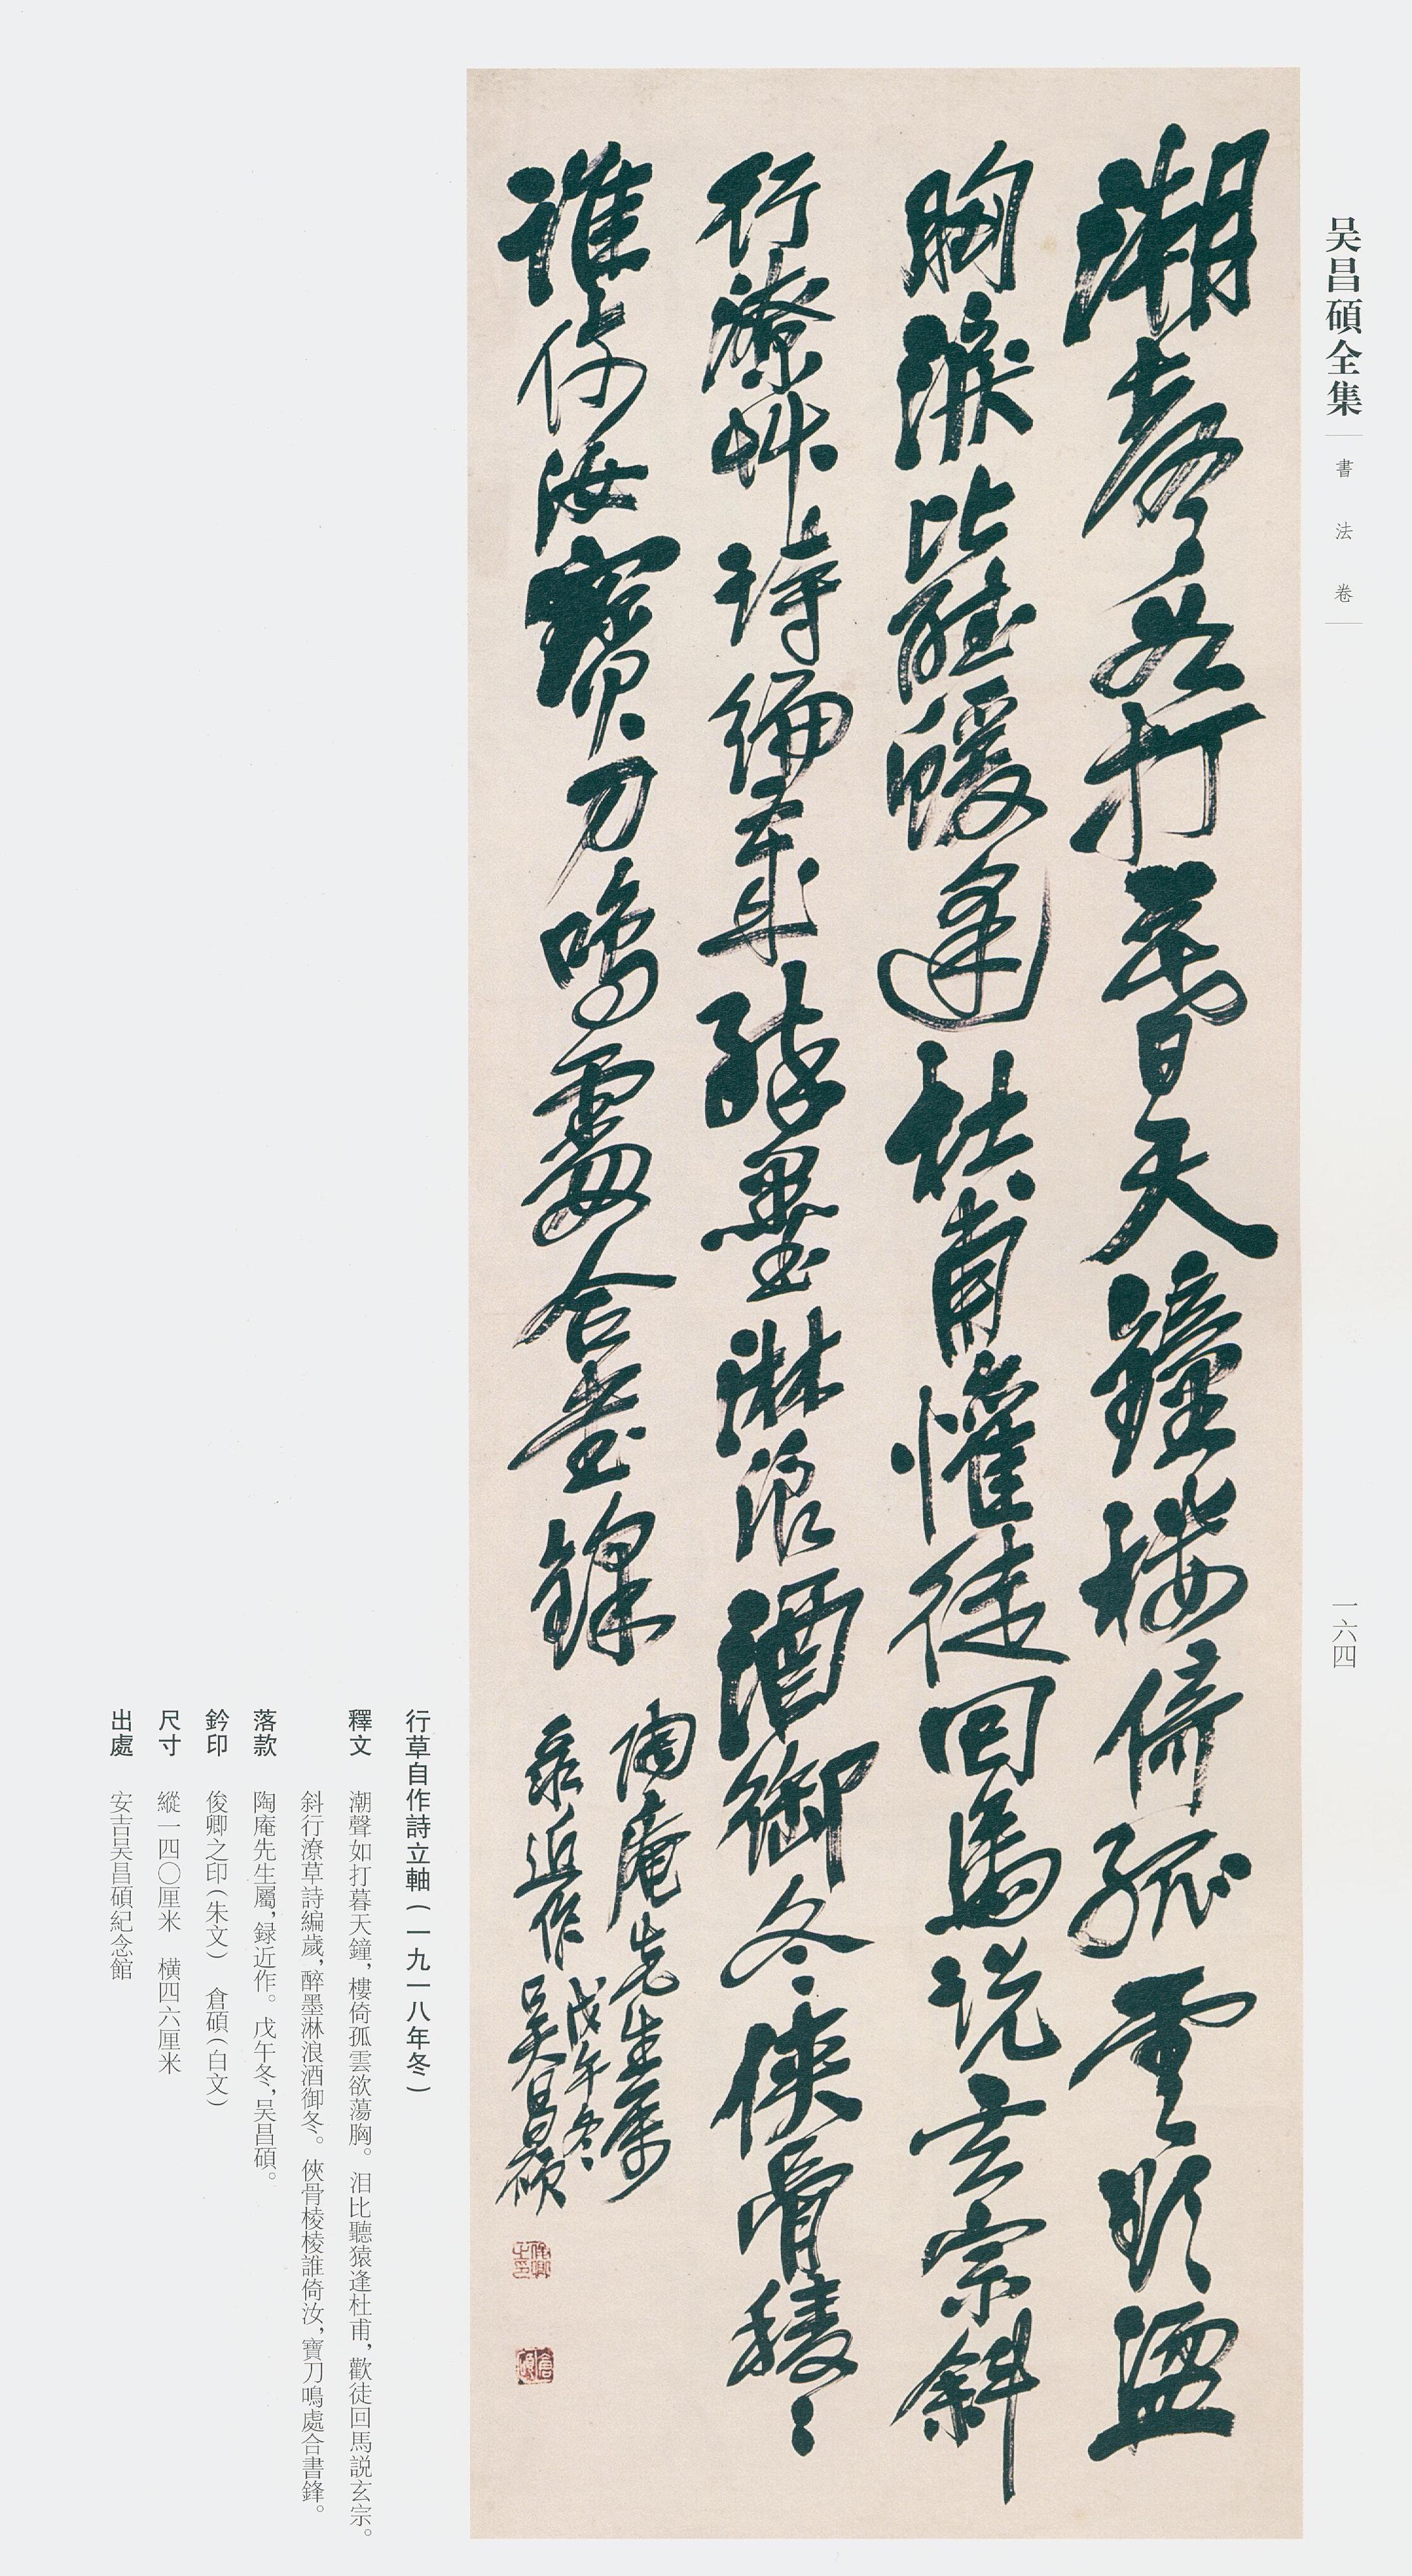 吴昌碩全集
書法卷
一六四
潮聲如打暮天鐘樓倚孤雲欲盪
胸淚比聽蝯逢杜甫懽徒回馬説玄宗斜
行潦艸詩編歲醉墨淋浪酒御冬俠骨稜〻
誰倚汝寶刀鳴處合書鋒
陶庵先生屬
录近作戊午冬
吳昌碩
俊卿之印
倉碩
行草自作詩立軸（一九一八年冬）
釋文 潮聲如打暮天鐘，樓倚孤雲欲蕩胸。泪比聽猿逢杜甫，歡徒回馬説玄宗。
斜行潦草詩編歲，醉墨淋浪酒御冬。俠骨棱棱誰倚汝，寶刀鳴處合書鋒。
落款 陶庵先生屬，録近作。戊午冬，吴昌碩。
鈐印 俊卿之印（朱文） 倉碩（白文）
尺寸 縱一四〇厘米 横四六厘米
出處 安吉吴昌碩紀念館